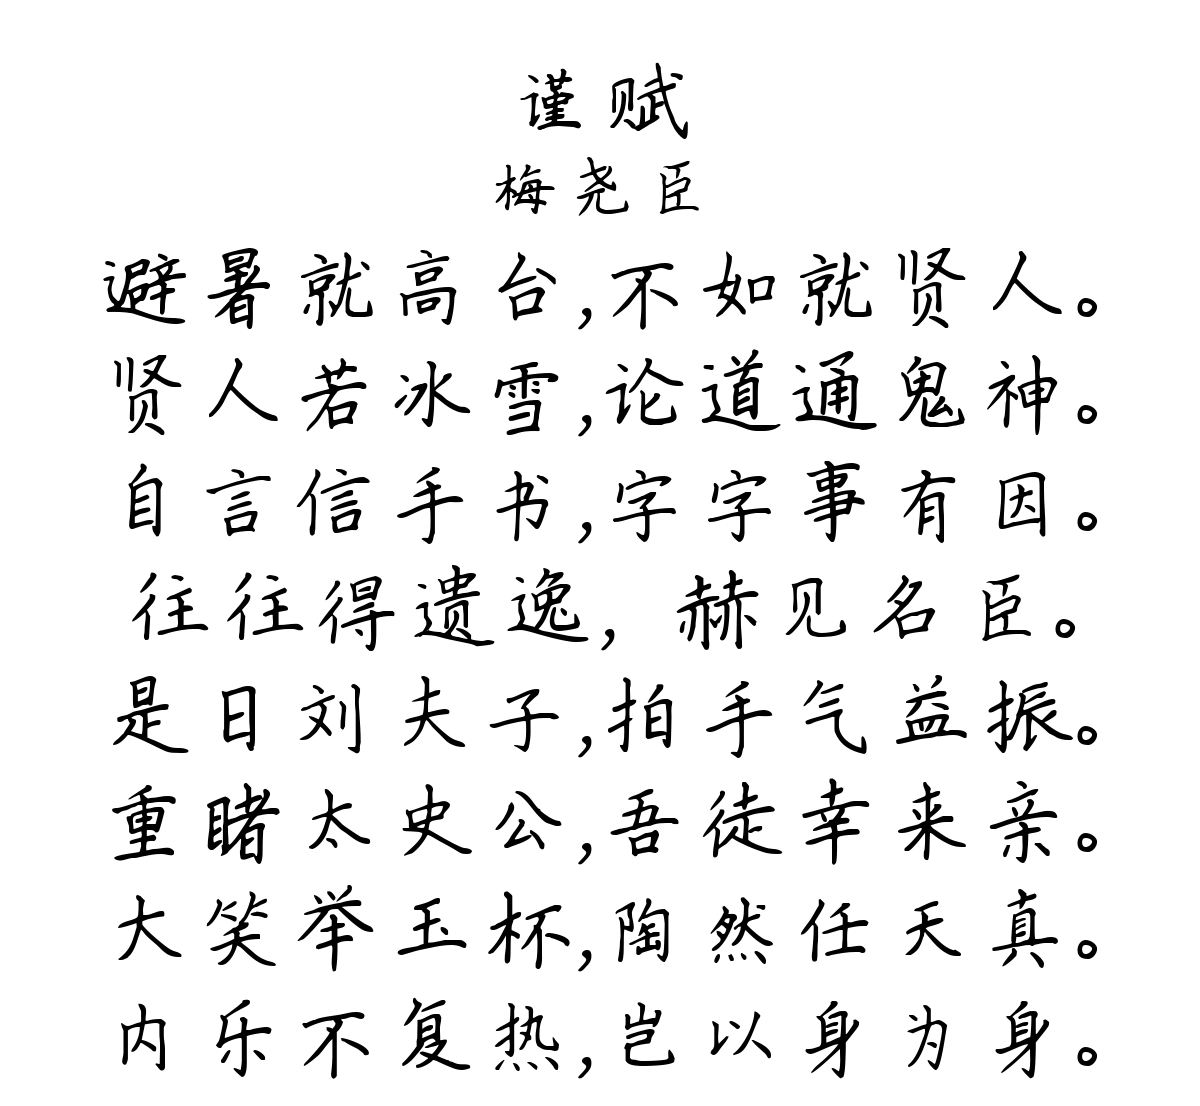 谨赋
梅尧臣
避暑就高台,不如就贤人。
贤人若冰雪,论道通鬼神。
自言信手书,字字事有因。
往往得遗逸,赫见名臣。
是日刘夫子,拍手气益振。
重睹太史公,吾徒幸来亲。
大笑举玉杯,陶然任天真。
内乐不复热,岂以身为身。